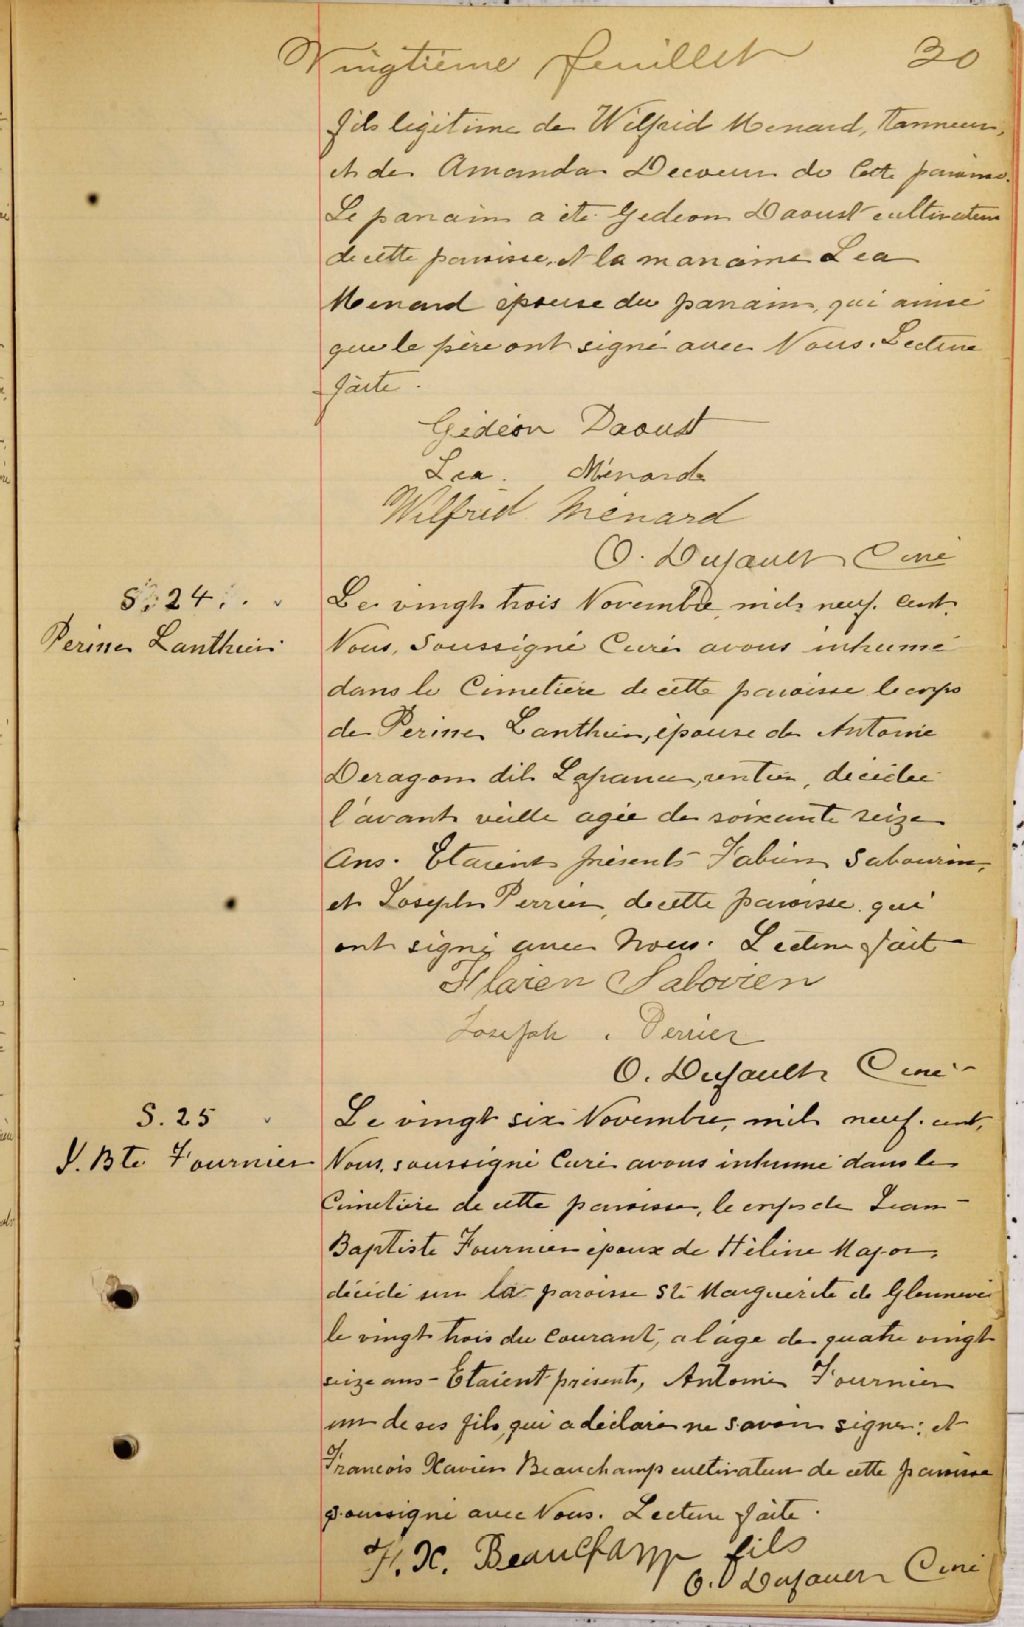 Vingtième feuillet 20
fils légitime de Wilfrid Menard, tanneur,
et de Amanda Decoeur de cette paroisse.
Le parrain a été Gedeon Daoust cultivateur
de cette paroisse, et la marraine Lea
Menard épouse du parrain, qui ainsi
que le père ont signé avec Nous. Lecture
faite.
Gédéon Daoust
Lea. Ménard
Wilfrid Ménard
O. Dufault Curé
S. 24.
Perine Lanthier
Le vingt trois Novembre mil neuf cent.
Nous, Soussigné Curé avons inhumé
dans le Cimetière de cette paroisse le corps
de Perine Lanthier, épouse de Antoine
Deragon dit Lafrance, rentier, décédée
l'avant veille agée de soixante seize
ans. Etaient présents Fabien Sabourin,
et Joseph Perrier, de cette paroisse qui
ont signé avec Nous. Lecture fait
Flaren Sabovren
Joseph . Perrier
O. Dufault Curé
S. 25
J. Bte Fournier
Le vingt six Novembre, mil neuf cent,
Nous, soussigné Curé avons inhumé dans le
Cimetière de cette paroisse, le corps de Jean-
Baptiste Fournier époux de Hélène Major,
décédé sur la paroisse Ste Marguerite de
le vingt trois du courant, a l'âge de quatre vingt
seize ans - Etaient présents, Antoine Fournier
un de ses fils, qui a déclaré ne savoir signer: et
Francois Xavier Beauchamp cultivateur de cette paroisse
soussigné avec Nous. Lecture faite.
F. X. Beauchamp fils
O. Dufault Curé